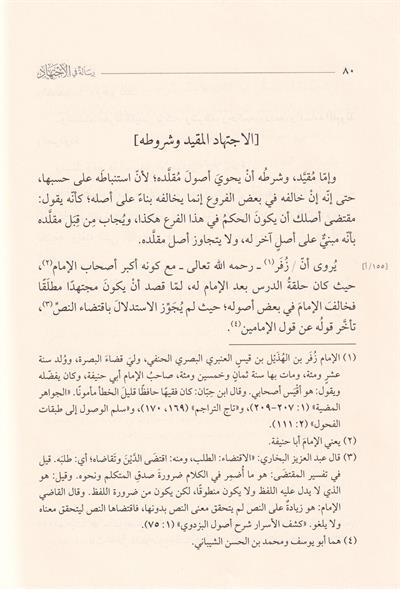 ٨٠ رسالة في الاجتهاد
[الاجتهاد المقيد وشروطه]
وإمّا مُقيَّد، وشرطُه أنْ يحويَ أصولَ مقلَّده؛ لأنّ استنباطَه على حسبها،
حتى إنّه إنْ خالفه في بعض الفروع إنما يخالفه بناءً على أصله؛ كأنّه يقول:
مقتضى أصلك أن يكونَ الحكمُ في هذا الفرع هكذا، ويُجاب مِن قِبَل مقلَّده
بأنّه مبنيٌّ على أصلٍ آخر له، ولا يتجاوز أصل مقلَّده.
[١٥٥/أ] يُروى أنّ / زُفَر(١) ـ رحمه الله تعالى ـ مع كونه أكبر أصحاب الإمام(٢)،
حيث كان حلقةُ الدرس بعد الإمام له، لمّا قصد أنْ يكونَ مجتهدًا مطلَقًا
فخالفَ الإمامَ في بعض أصوله؛ حيث لم يُجَوّز الاستدلالَ باقتضاء النصِّ(٣)،
تأخّر قولُه عن قول الإمامين(٤).
(١) الإمام زُفَر بن الهُذَيْل بن قيس العنبري البصري الحنفي، وليَ قضاءَ البصرة، ووُلد سنة
عشرٍ ومئة، ومات بها سنة ثمانٍ وخمسين ومئة، صاحبُ الإمام أبي حنيفة، وكان يفضّله
ويقول: هو أقْيَس أصحابي. وقال ابن حِبّان: كان فقيهًا حافظًا قليلَ الخطأ مأمونًا. «الجواهر
المضية» (١: ٢٠٧-٢٠٩)، و«تاج التراجم» (١٦٩، ١٧٠)، و«سلم الوصول إلى طبقات
الفحول» (٢: ١١١).
(٢) يعني الإمامَ أبا حنيفة.
(٣) قال عبد العزيز البخاري: «الاقتضاء: الطلب، ومنه: اقتضَى الدَّيْنَ وتَقاضاه؛ أي: طلبَه. قيل
في تفسير المقتضَى: هو ما أُضمِر في الكلام ضرورةَ صدقِ المتكلم ونحوه. وقيل: هو
الذي لا يدل عليه اللفظ ولا يكون منطوقًا، لكن يكون من ضرورة اللفظ. وقال القاضي
الإمام: هو زيادةٌ على النص لم يتحقق معنى النص بدونها، فاقتضاها النص ليتحقق معناه
ولا يلغو. «كشف الأسرار شرح أصول البزدوي» (١: ٧٥).
(٤) هما أبو يوسف ومحمد بن الحسن الشيباني.